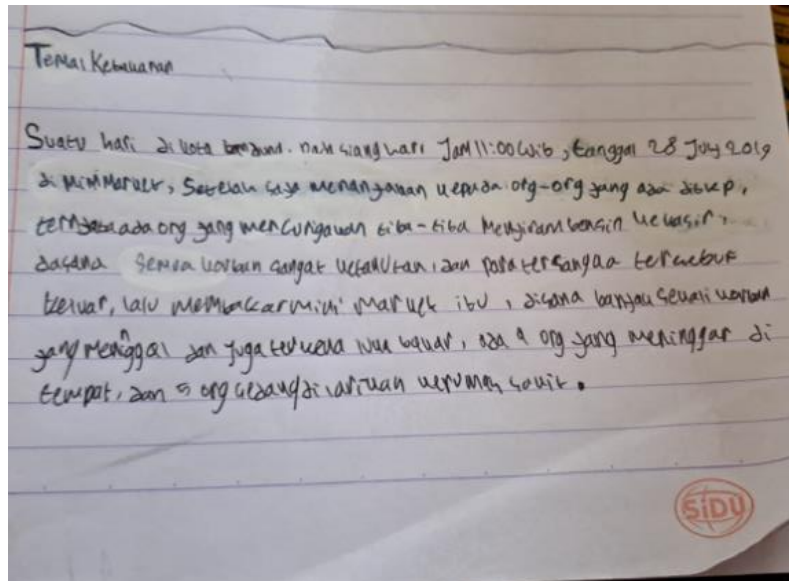 Tema: Kebakaran
Suatu hari di kota bandung. Pada siang hari Jam 11:00 Wib, tanggal 28 July 2019
di MiniMarket, Setelah saya menanyakan kepada org-org yang ada disekp,
ternyata ada org yang mencurigakan tiba-tiba Menyiram bensin ke kasir,
disana Semua korban sangat ketakutan, dan para tersangka tersebut
keluar, lalu membakar mini market itu, disana banyak sekali korban
yang meninggal dan juga terkena luka bakar, ada 9 org yang meninggal di
tempat, dan 5 org sedang di larikan kerumah sakit.
SiDU